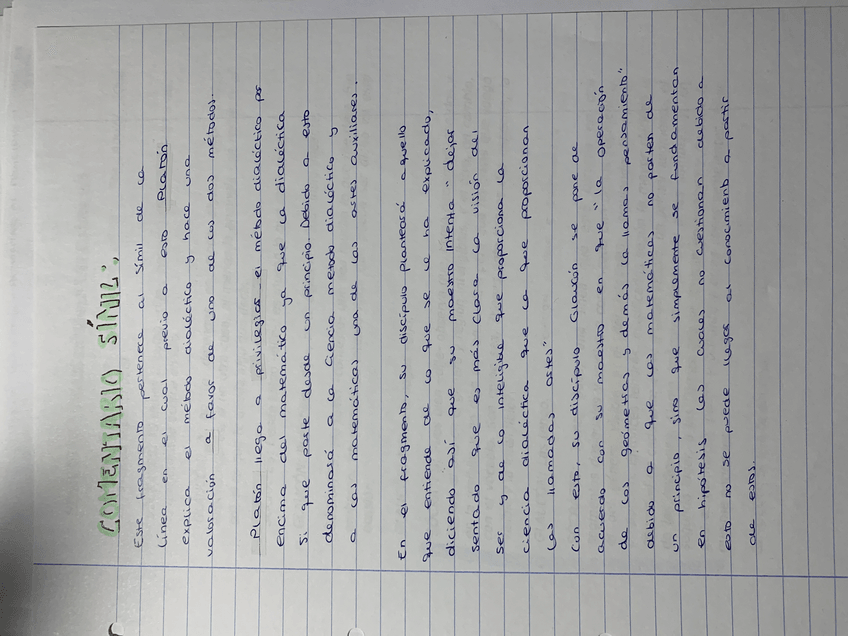 COMENTARIO SÍMIL:
Este fragmento pertenece al símil de la
línea en el cual previo a esto Platón
explica el método dialéctico y hace una
valoración a favor de uno de los dos métodos.
Platón llega a privilegiar el método dialéctico por
encima del matemático ya que la dialéctica
si que parte desde un principio. Debido a esto
denominará a la ciencia método dialéctico y
a las matemáticas una de las artes auxiliares.
En el fragmento, su discípulo planteará aquello
que entiende de lo que se le ha explicado,
diciendo así que su maestro intenta "dejar
sentado que es más clara la visión del
ser y de lo inteligible que proporciona la
ciencia dialéctica que la que proporcionan
las llamadas artes"
Con esto, su discípulo Glaucón se pone de
acuerdo con su maestro en que "la operación
de los geómetras y demás la llamas pensamiento"
debido a que las matemáticas no parten de
un principio, sino que simplemente se fundamentan
en hipótesis las cuales no cuestionan debido a
esto no se puede llegar al conocimiento a partir
de estos.